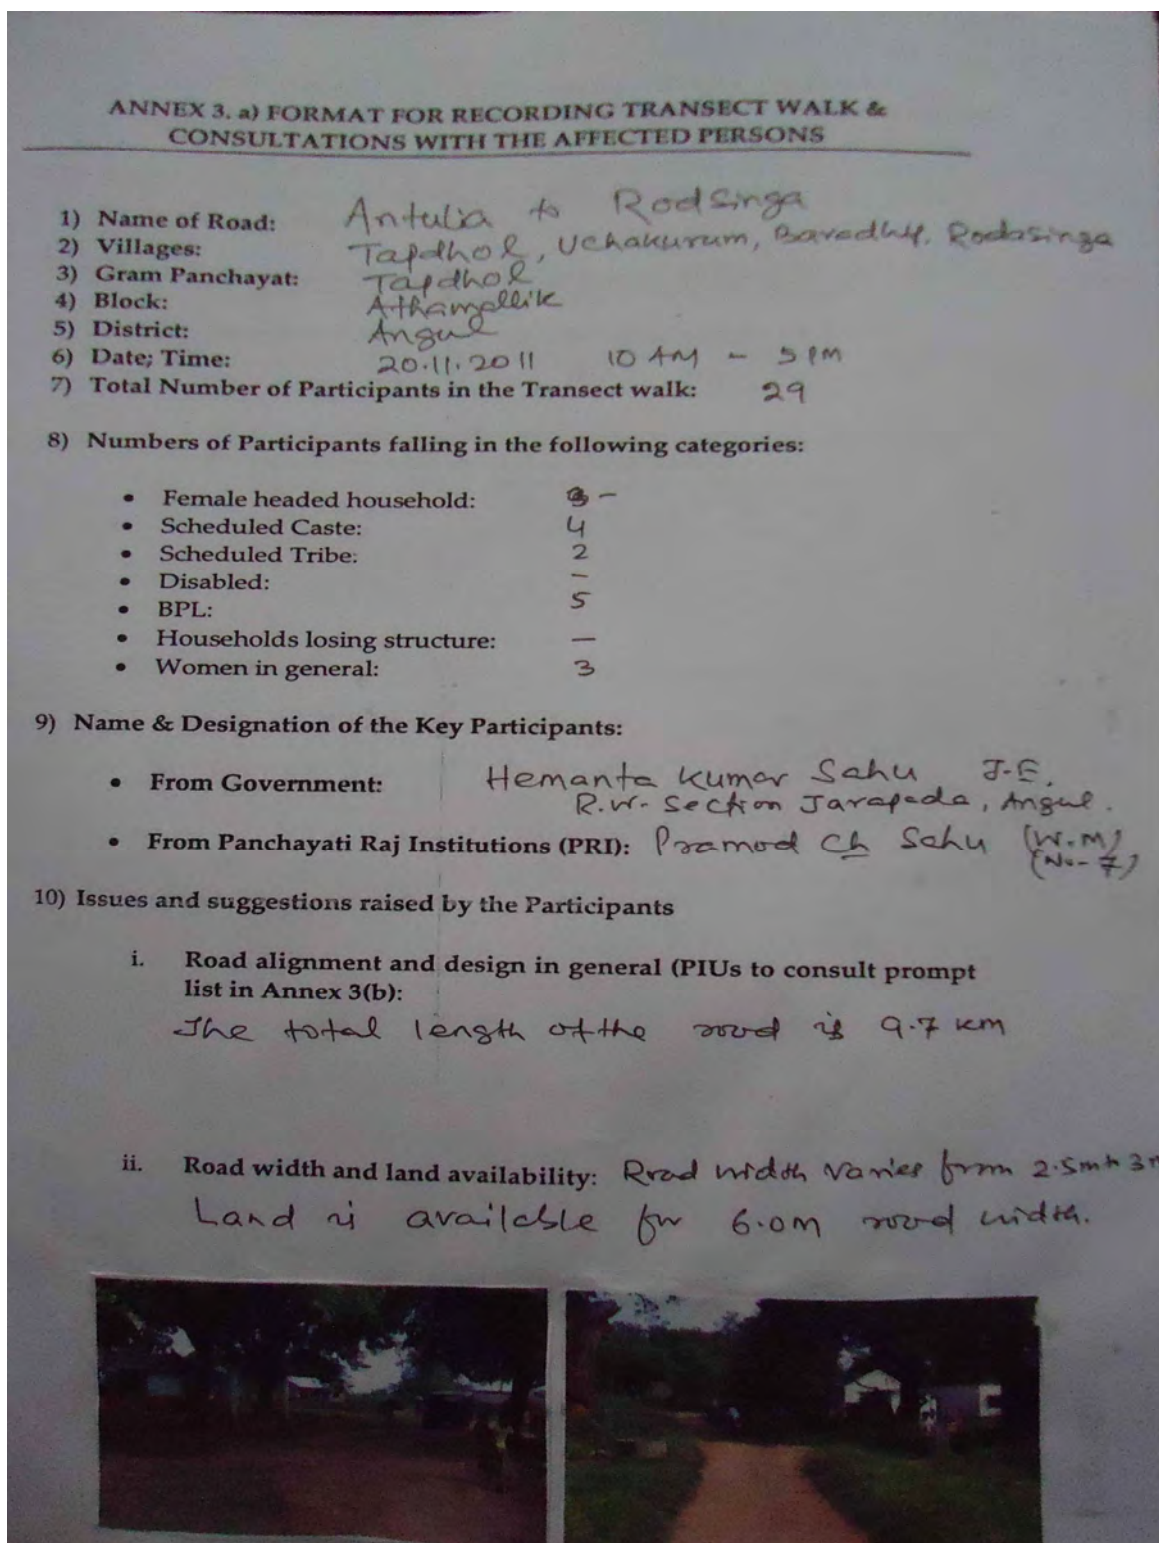 ANNEX 3. a) FORMAT FOR RECORDING TRANSECT WALK &
CONSULTATIONS WITH THE AFFECTED PERSONS
1) Name of Road: Antulia to Rodsinga
2) Villages: Tapdhol, Uchakurum, Rodasinga
3) Gram Panchayat: Tapdhol
4) Block: Athamallik
5) District: Angul
6) Date; Time: 20.11.2011 10 AM - 5 PM
7) Total Number of Participants in the Transect walk: 29
8) Numbers of Participants falling in the following categories:
• Female headed household: -
• Scheduled Caste: 4
• Scheduled Tribe: 2
• Disabled: -
• BPL: 5
• Households losing structure: —
• Women in general: 3
9) Name & Designation of the Key Participants:
• From Government: Hemanta Kumar Sahu J.E.
R.W. Section Jarapada, Angul.
• From Panchayati Raj Institutions (PRI): Pramod Ch Sahu (W.M)
(No-7)
10) Issues and suggestions raised by the Participants
i. Road alignment and design in general (PIUs to consult prompt
list in Annex 3(b):
The total length of the road is 9.7 km
ii. Road width and land availability: Road width varies from 2.5m to 3
Land is available for 6.0m road width.